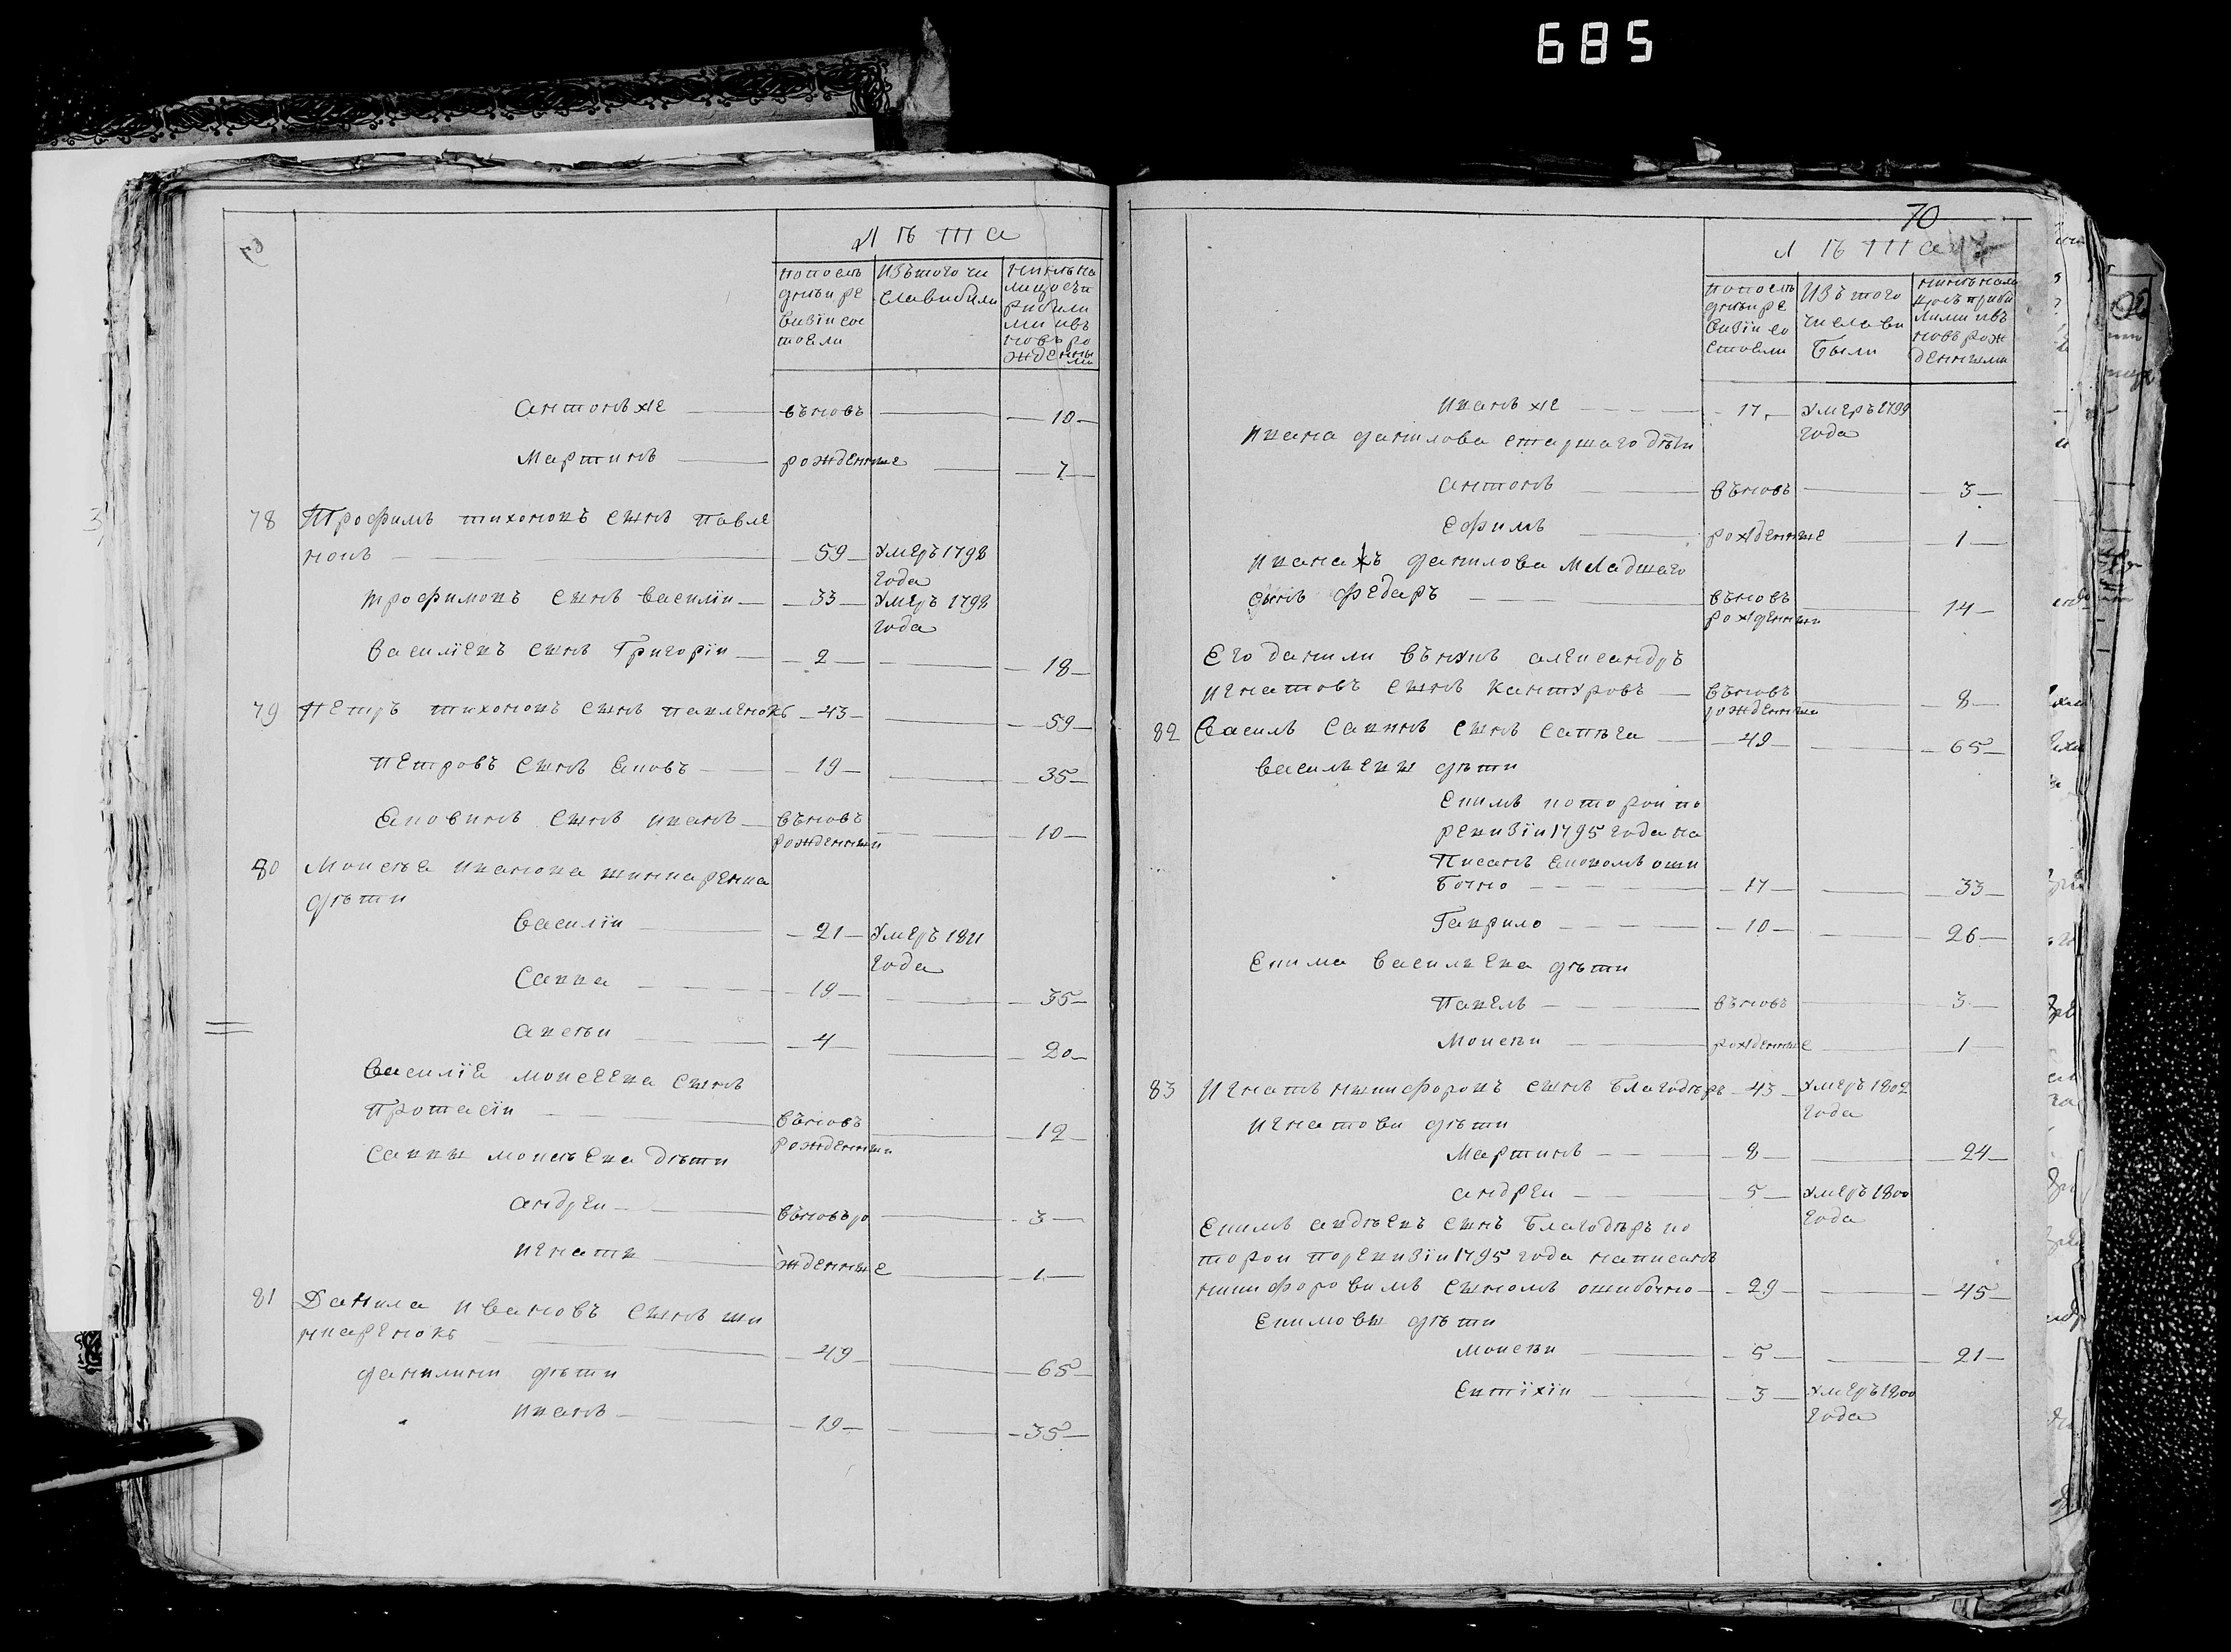 685
69
Лѣта
попослѣ
дней ре
визіи сос
тояли
изъ того чи
сла выбыли
ныне на
лицо съп
рибыли
ми ивъ
новь ро
жденны
ми
Антонъ же — вѣновь — 10
Мартинъ — рожденные — 7
78 Трофимъ тихоновъ сынъ павле
нокъ — 59 — умеръ 1798
года
трофимовъ сынъ василіи — 33 — умеръ 1798
года
василіевъ сынъ Григоріи — 2 — 18
79 Петръ тихоновъ сынъ павленокъ — 43 — 59
Петровъ сынъ яковъ — 19 — 35
яковинъ сынъ иванъ — вѣновь — 10
рожденныи
80 Моисѣя иванова шинкаренка
дѣти
василіи — 21 — умеръ 1811
года
Савва — 19 — 35
авсѣи — 4 — 20
василіе моисеева сынъ
Протасіи — вѣновь — 12
рожденныи
саввы моисѣева дѣти
андреи — вѣновь ро — 3
игнати — жденные — 1
81 Данила ивановъ сынъ ши
нкаренокъ — 49 — 65
данилини дѣти
иванъ — 19 — 35
70
Лѣта
попослѣ
дней ре
визіи со
стояли
изъ того
числа вы
были
ныне нали
цо съ прибы
лими ивъ
новь рож
денними
иванъ же — 17 — умеръ 1799
года
ивана данилова старшаго дѣти
антонъ — вѣновь — 3
Ефимъ — рожденные — 1
ивана жъ данилова младшаго
сынъ федаръ — вѣновь — 14
рожденныи
Его данили внукъ александръ
игнатовъ сынъ кантуровъ — вѣновь — 8
рожденныи
82 василъ савинъ сынъ сапѣга — 49 — 65
васильевы дѣти
Екимъ которои по
ревизіи 1795 года на
писанъ яковомъ оши
бочно — 17 — 33
Гаврило — 10 — 26
Екима васильева дѣти
Павелъ — вѣновь — 3
Моисѣи — рожденные — 1
83 Игнатъ никифоровъ сынъ благодѣръ — 43 — умеръ 1802
года
игнатови дѣти
Мартинъ — 8 — 24
андреи — 5 — умеръ 1800
года
Екимъ авдѣевъ сынъ благодѣръ ко
торои поревизіи 1795 года написанъ
никифоровимъ сыномъ ошибочно — 29 — 45
Екимовы дѣти
моисѣи — 5 — 21
Евтіхіи — 3 — умеръ 1800
года